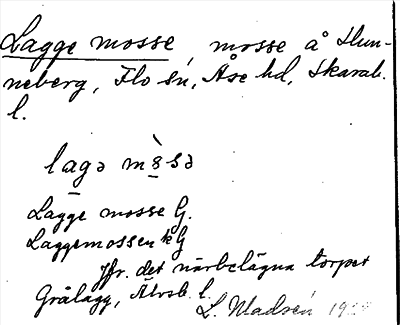 Lagge mosse, mosse å Hun-
neberg, Flo sn, Åse hd, Skarab.
l.
lagə mȣ̀sə
Lagge mosse G.
Laggemossen k G
Jfr. det närbelägna torpet
Grålagg, Älvsb. l.
L. Madsén